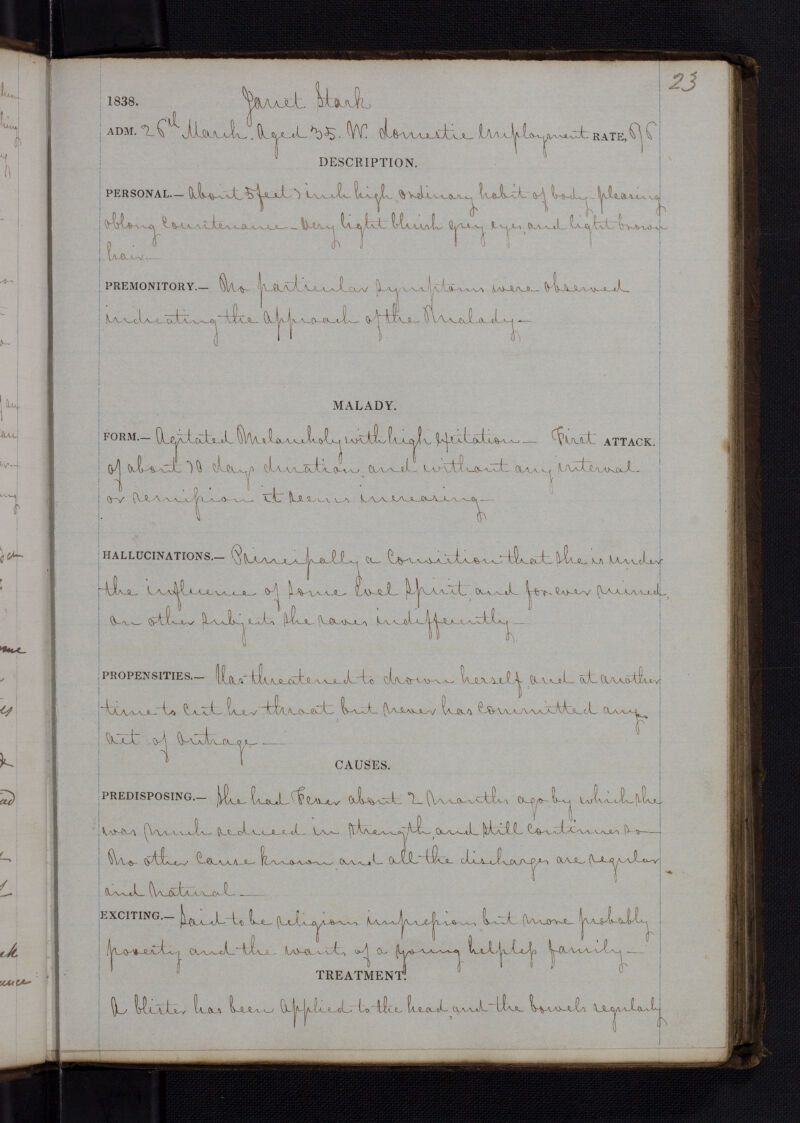 23
1838. Janet Stark
ADM. 26th March. Aged 35. W. domestic Employment RATE, 6/6
DESCRIPTION.
PERSONAL.— About 5 feet 1 inch high ordinary habit of body pleasing
oblong Countenance – Very light bluish grey eyes and light brown
hair —
PREMONITORY.— No particular Symptoms were observed
indicating the approach of the Malady —
MALADY.
FORM.— Agitated Melancholy with high Excitation — First ATTACK.
of about 10 days duration, and without any interval
or remission it seems increasing —
HALLUCINATIONS.— Principally a Conviction that She is under
the influence of Some Evel Spirit and for ever ruined,
on other Subjects She raves indifferently —
PROPENSITIES.— Has threatened to drown herself and at another
time to Cut her throat but never has Committed any
act of Outrage —
CAUSES.
PREDISPOSING.— She had Fever about 2 Months ago by which She
was much reduced in Strength and Still Continues so —
No other Cause known and all the discharges are regular
and Natural —
EXCITING.— Said to be religious impressions but more probably
poverty and the wants of a young helpless family —
TREATMENT.
A blister has been applied to the head and the bowels regularly